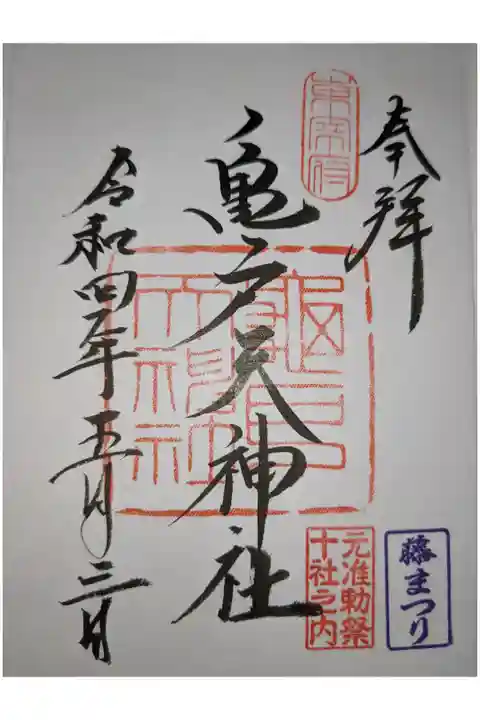 奉拝
東宰府
亀戸天神社
亀戸天神社
元准勅祭
十社之内
藤まつり
令和四年五月三日